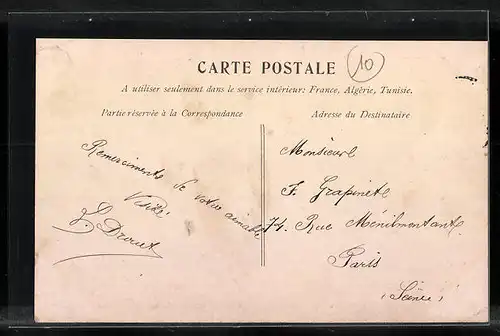 CARTE POSTALE
10
A utiliser seulement dans le service intérieur: France, Algérie, Tunisie.
Partie réservée à la Correspondance
Adresse du Destinataire
Remerciments de votre aimable
Visite
Monsieur
F. Grapinete
74 Rue Ménilmontant
Paris
(Seine)